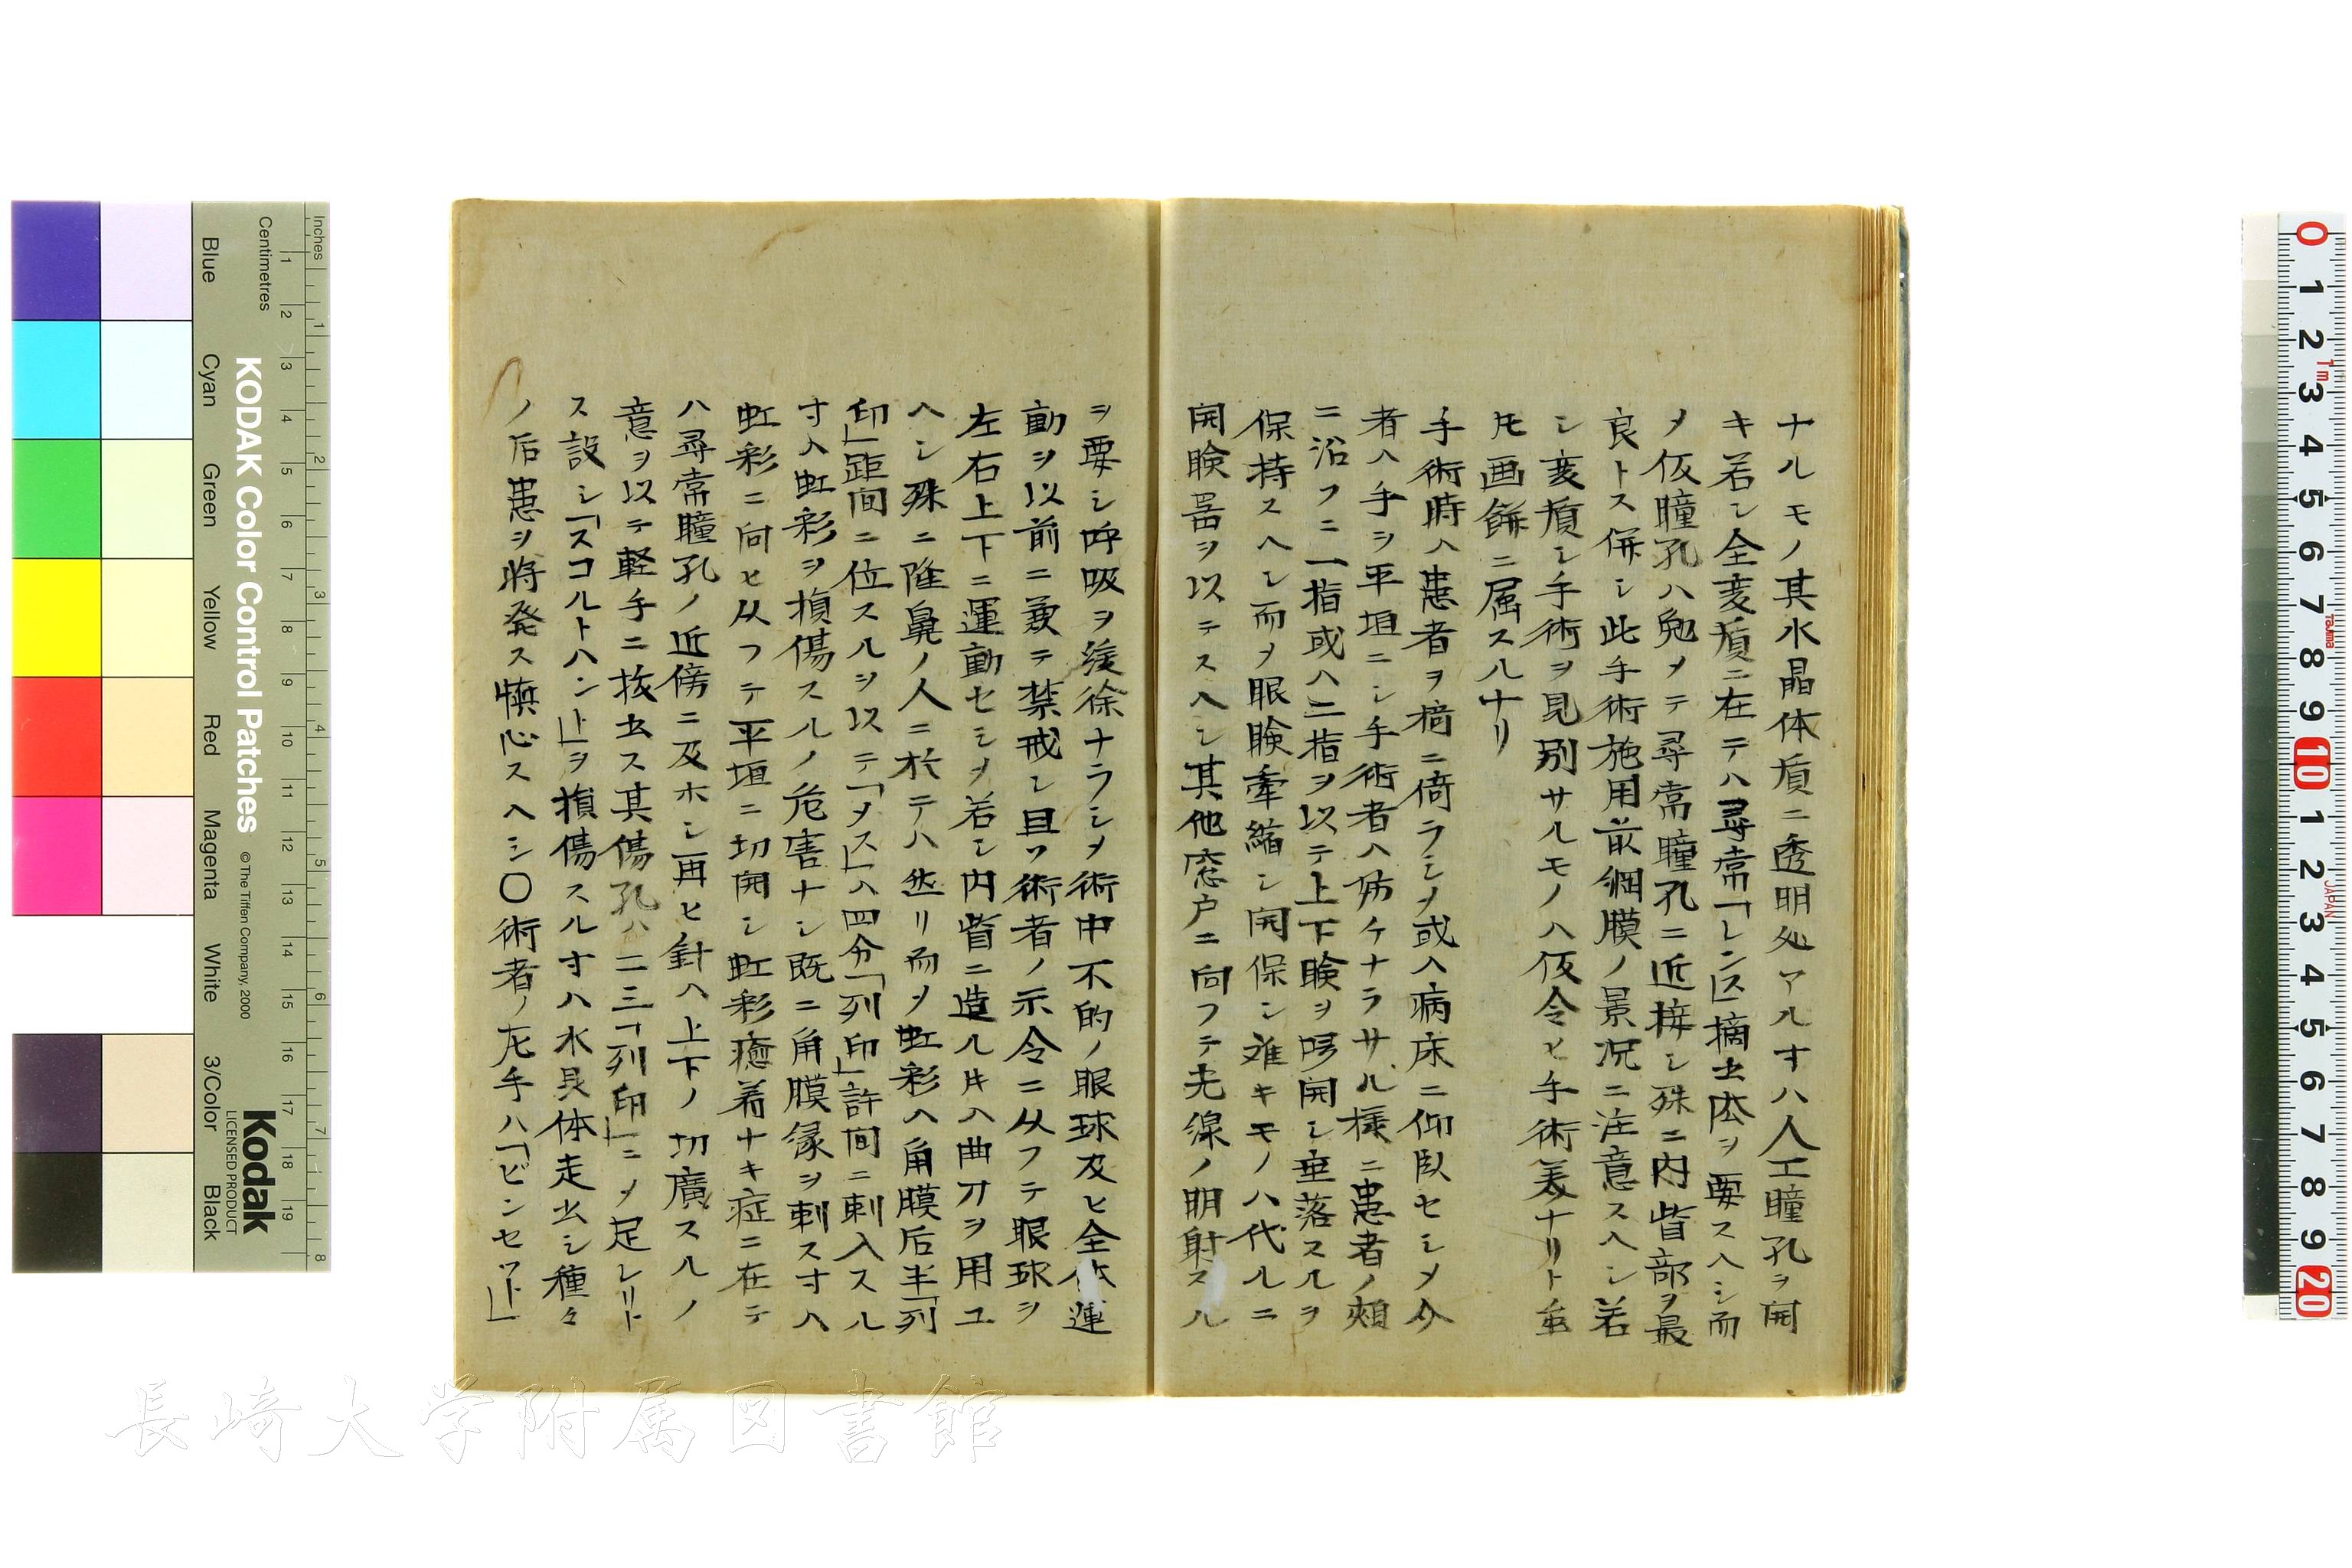 ナルモノ其水晶体質ニ透明処アル寸ハ人工瞳孔ヲ開
キ若シ全変質ニ在テハ尋常「レンス」摘出法ヲ要スヘシ而
メ仮瞳孔ハ勉メテ尋常瞳孔ニ近接シ殊ニ内眥部ヲ最
良トス併シ此手術施用前網膜ノ景况ニ注意スヘシ若
シ変質シ手術ヲ見別サルモノハ仮令ヒ手術美ナリト虽
𪜈画餅ニ属スルナリ
手術時ハ患者ヲ椅ニ倚ラシメ或ハ病床ニ仰臥セシメ介
者ハ手ヲ平垣ニシ手術者ハ妨ケナラサル様ニ患者ノ頬
ニ沿フニ一指或ハ二指ヲ以テ上下瞼ヲ哆開シ垂落スルヲ
保持スヘシ而メ眼瞼牽縮シ開保シ难キモノハ代ルニ
開瞼噐ヲ以テスヘシ其他窓戸ニ向フテ光線ノ明射スル
ヲ要シ呼吸ヲ緩徐ナラシメ術中不的ノ眼球及ヒ全体運
動ヲ以前ニ兼テ禁戒シ且ツ術者ノ示令ニ从フテ眼球ヲ
左右上下ニ運動セシメ若シ内眥ニ造ル片ハ曲刀ヲ用ユ
ヘシ殊ニ隆鼻ノ人ニ於テハ然リ而メ虹彩ハ角膜后半「列
印」距間ニ位スルヲ以テ「メス」ハ四分「列印」許間ニ刺入スル
寸ハ虹彩ヲ損傷スルノ危害ナシ既ニ角膜縁ヲ刺ス寸ハ
虹彩ニ向ヒ从フテ平垣ニ切開シ虹彩癒着ナキ症ニ在テ
ハ尋常瞳孔ノ近傍ニ及ホシ再ヒ針ヘ上下ノ切廣スルノ
意ヲ以テ軽手ニ抜出ス其傷孔ハ二三「列印」ニメ足レリト
ス設シ「スコルトハント」ヲ損傷スル寸ハ水具体走出シ種々
ノ后患ヲ将発ス慎心スヘシ〇術者ノ左手ハ「ピンセツト」
長崎大学附属図書館
KODAK Color Control Patches
© The Tiffen Company, 2000
Kodak
LICENSED PRODUCT
Inches
Centimetres
Blue
Cyan
Green
Yellow
Red
Magenta
White
3/Color
Black